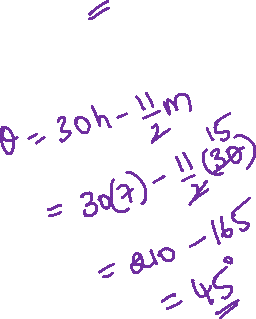 =
θ = 30h - 11/2 m
= 30(7) - 11/2 (30) 15
= 210 - 165
= 45°